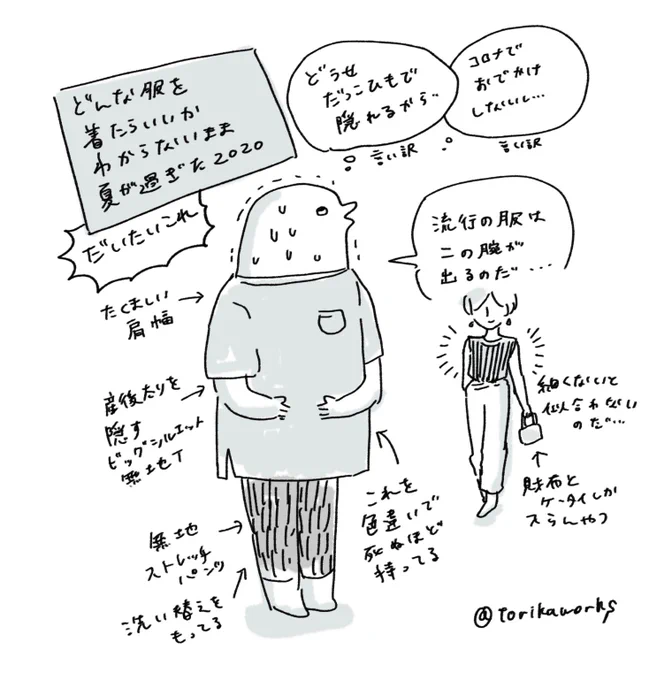 どんな服を
着たらいいか
わからないまま
夏が過ぎた2020
だいたいこれ
どうせ
だっこひもで
隠れるから…
言い訳
コロナで
おでかけ
しないし…
言い訳
流行の服は
二の腕が
出るのだ…
たくましい
肩幅
産後太りを
隠す
ビッグシルエット
無地T
無地
ストレッチ
パンツ
洗い替えを
もってる
これを
色違いで
死ぬほど
持ってる
細くないと
似合わない
のだ…
財布と
ケータイしか
入らんやつ
@torikaworks